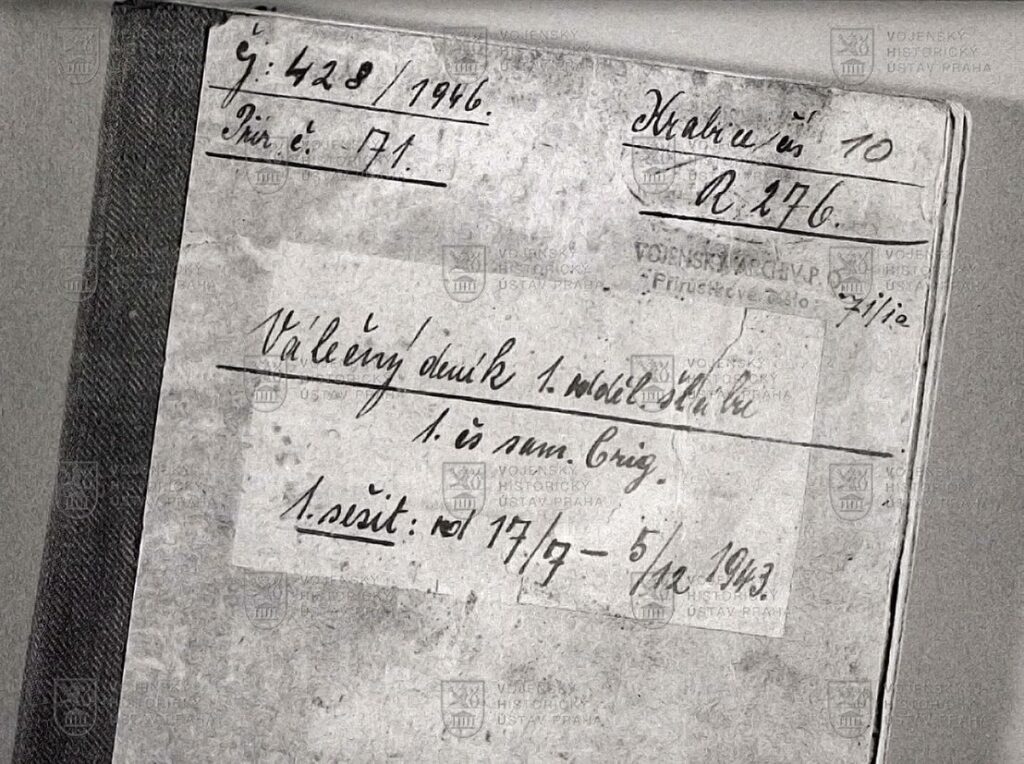 Čj: 428/1946.
Přír. č. 71.
Krabice čís 10
R 276.
VOJENSKÝ ARCHIV R.
Přírůstkové číslo
71/1a
Válečný deník 1. odděl. štábu
1. čs sam. brig.
1. sešit: od 17/7 – 5/12 1943.
VOJENSKÝ
HISTORICKÝ
ÚSTAV PRAHA